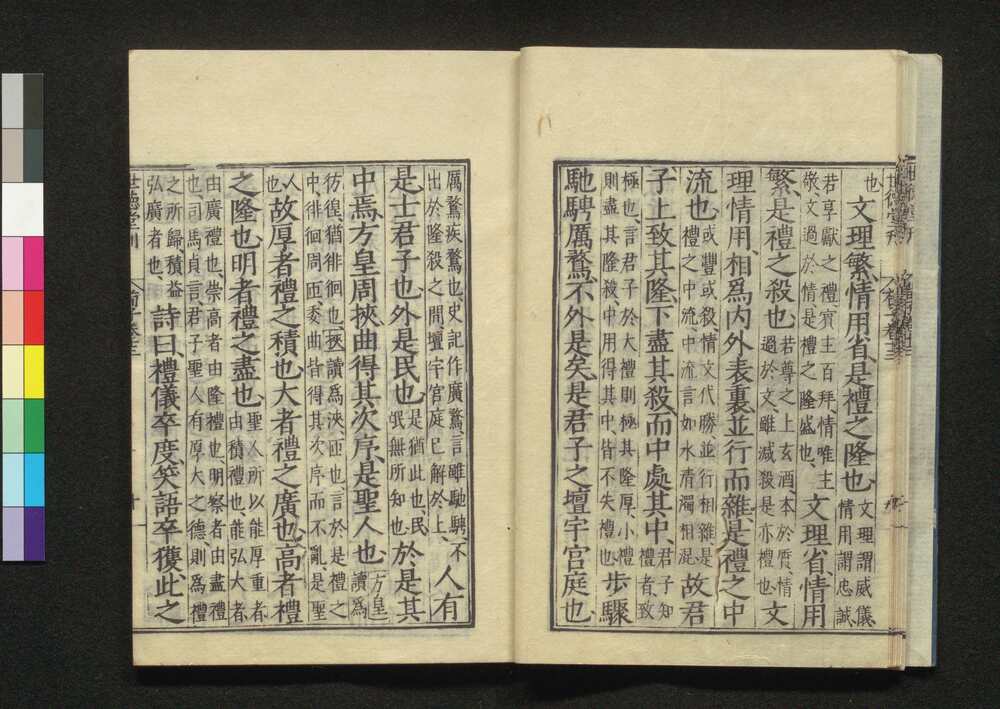 也文理繁情用省是禮之隆也文理謂威儀情用謂忠誠
若享獻之禮賓主百拜情唯主敬文過於情是禮之隆盛也文理省情用
繁是禮之殺也若尊之上玄酒本於質情過於文雖减殺是亦禮也文
理情用相爲内外表裏並行而雜是禮之中
流也或豐或殺情文代勝並行相雜是禮之中流中流言如水清濁相混故君
子上致其隆下盡其殺而中處其中君子知禮者致
極也言君子於大禮則極其隆厚小禮則盡其隆殺中用得其中皆不失禮也步驟
馳騁厲騖不外是矣是君子之壇宇宫庭也
厲騖疾騖也史記作廣騖言雖馳騁不出於隆殺之間壇宇宫庭已解於上人有
是士君子也外是民也是猶此也民氓無所知也於是其
中焉方皇周挾曲得其次序是聖人也方皇讀爲
彷徨猶徘徊也挾讀爲浹匝也言於是禮之中徘徊周匝委曲皆得其次序而不亂是聖
人也故厚者禮之積也大者禮之廣也高者禮
之隆也明者禮之盡也聖人所以能厚重者由積禮也能弘大者
由廣禮也崇高者由隆禮也明察者由盡禮也司馬貞言君子聖人有厚大之德則爲禮
之所歸積益弘廣者也詩曰禮儀卒度笑語卒獲此之
世德堂刊